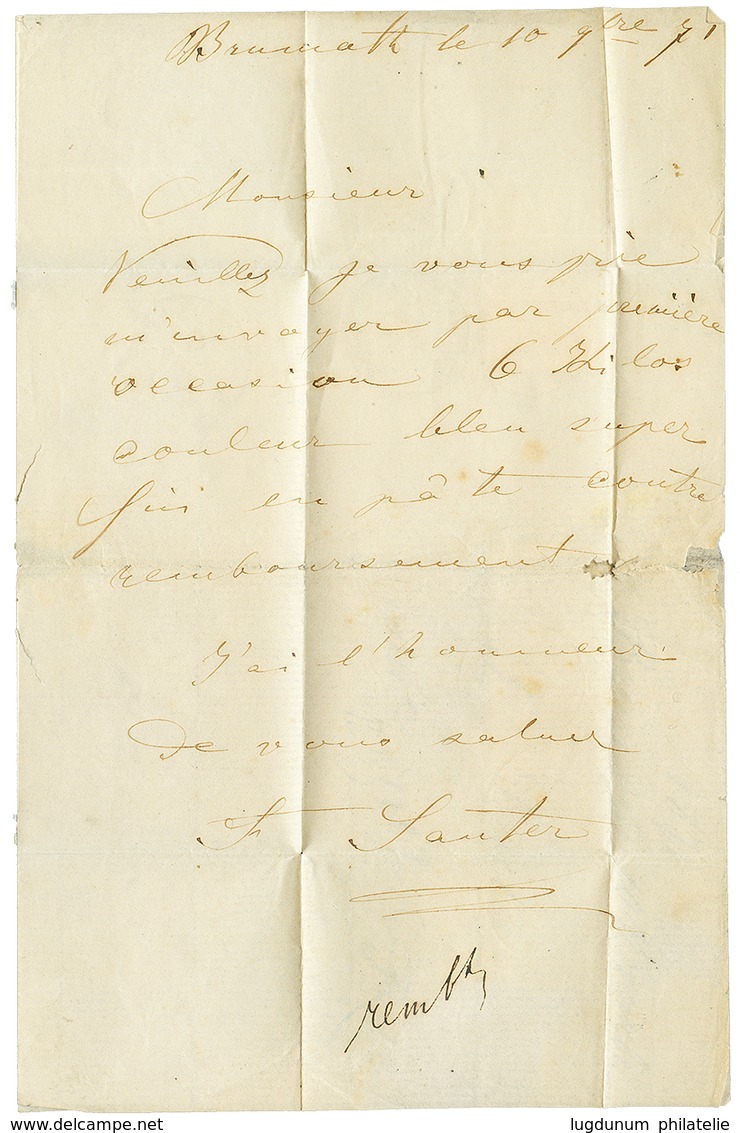 Brumath le 10 9bre 71
Monsieur
Veuillez je vous prie
m'envoyer par première
occasion 6 Kilos
couleur bleu super
fin en pâte contre
remboursement
J'ai l'honneur
de vous saluer
F Sauter
rembt
lugdunum philatelie